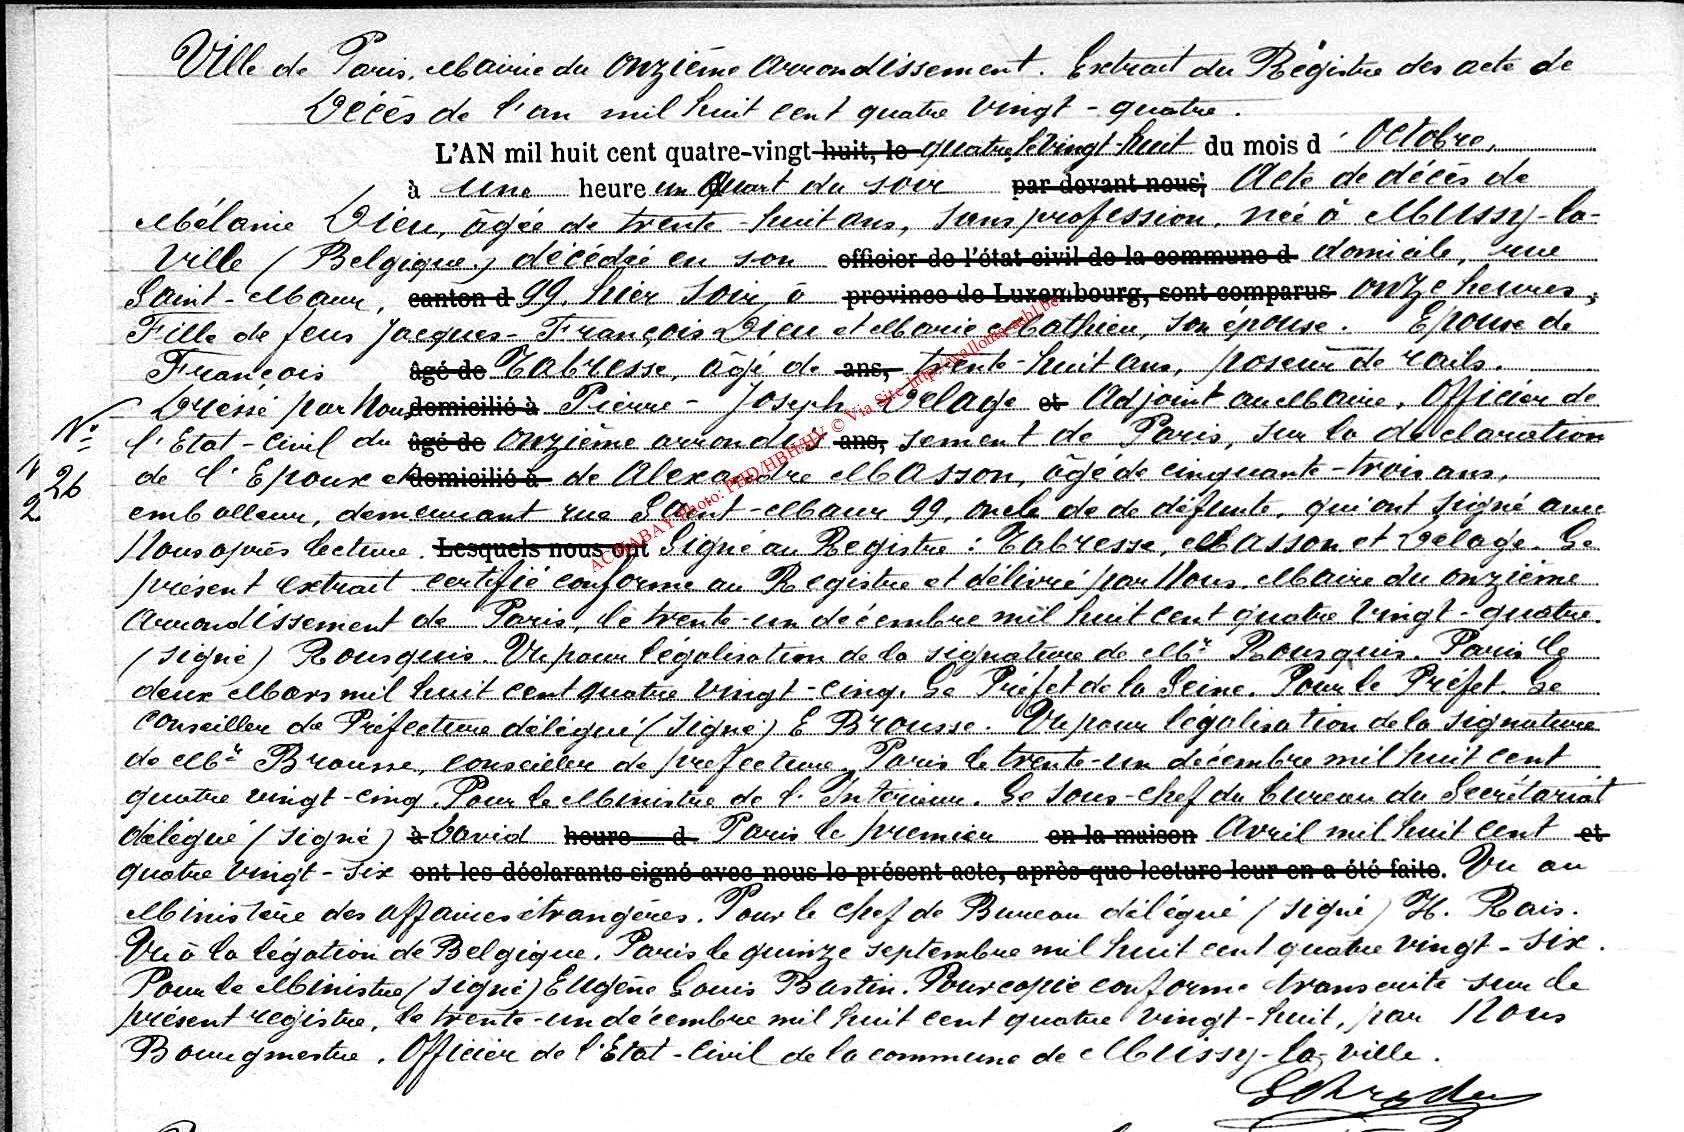 Ville de Paris, Mairie du onzième arrondissement. Extrait du Régistre des acte de
Décès de l'an mil huit cent quatre vingt-quatre.
L'AN mil huit cent quatre-vingt huit, le quatre, le vingt-huit du mois d'Octobre,
à une heure un quart du soir par devant nous; Acte de décès de
Mélanie Dieu, âgée de trente-huit ans, sans profession, née à Mussy-la-
Ville (Belgique) décédée en son officier de l'état civil de la commune d domicile, rue
Saint-Maur, canton d 99, hier soir, à province de Luxembourg, sont comparus onze heures;
Fille de feus Jacques-François Dieu et Marie Mathieu, son épouse. Epouse de
François âgé de Tabresse, âgé de ans, trente-huit ans, poseur de rails.
Dressé par Nous domicilié à Pierre-Joseph Delage et Adjoint au Maire, Officier de
N°
l'Etat-civil du âgé de onzième arrondis ans, sement de Paris, sur la déclaration
26
de l'Epoux et domicilié à de Alexandre Masson, âgé de cinquante-trois ans,
2
emballeur, demeurant rue Saint-Maur 99, oncle de de défunte, qui ont signé avec
Nous après lecture. Lesquels nous ont Signé au Registre: Tabresse, Masson et Delage. Le
présent extrait certifié conforme au Registre et délivré par Nous, Maire du onzième
arrondissement de Paris, le trente-un décembre mil huit cent quatre vingt-quatre.
(signé) Rousquis. Vu pour légalisation de la signature de Mr Rousquis. Paris le
deux Mars mil huit cent quatre vingt-cinq. Le Préfet de la Seine. Pour le Préfet. Le
Conseiller de Préfecture délégué (signé) E Brousse. Vu pour légalisation de la signature
de Mr Brousse, conseiller de préfecture. Paris le trente-un décembre mil huit cent
quatre vingt-cinq. Pour le Ministre de l'Intérieur. Le Sous-chef du bureau du Secrétariat
délégué (signé) à David heure d Paris le premier en la maison Avril mil huit cent et
quatre vingt-six ont les déclarants signé avec nous le présent acte, après que lecture leur en a été faite. Vu au
Ministère des affaires étrangères. Pour le chef de Bureau délégué (signé) H. Rais.
Vu à la légation de Belgique. Paris le quinze septembre mil huit cent quatre vingt-six.
Pour le Ministre (signé) Eugène Louis Bastin. Pour copie conforme transcrite sur le
présent registre, le trente-un décembre mil huit cent quatre vingt-huit, par Nous
Bourgmestre, Officier de l'Etat-Civil de la commune de Mussy-la-ville.
ACHABAY Photo: PHD/HBH/HV © Via Site http://wallonia-asbl.be